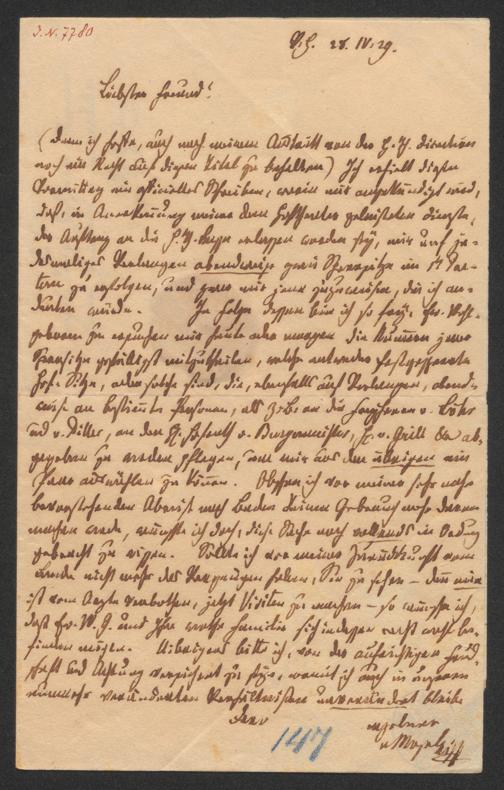 J. N. 7780
V. H. 28. IV. 29.
Liebster Freund!
(denn ich hoffe, auch nach meinem Austritt von der H. Th. Direction
noch ein Recht auf diesen Titel zu behalten) Ich erhielt diesen
Vormittag ein officielles Schreiben, worin mir angekündigt wird,
daß, in Anerkennung meiner dem Hoftheater geleisteten Dienste,
der Auftrag an die H. Th. erlassen worden sey, mir auf je-
desmaliges Verlangen abendweise zwei Sperrsitze im 1t Par-
terre zu erfolgen, und zwar mir jene zuzuweisen, die ich an-
deuten würde. In Folge dessen bin ich so frey, Ew. Wohl-
geboren zu ersuchen mir heute oder morgen die Nummern jener
Sperrsitze gefälligst mitzutheilen, welche entweder festgesperrte
Hof-Sitze, oder solche sind, die, ebenfalls auf Verlangen, abend-
weise an bestimmte Personen, als z. B. an die v.
und v. Diller, an den v. Burgermeister, H. v. &c ab-
gegeben zu werden pflegen, um mir aus den übrigen ein
Paar auswählen zu können. Obschon ich vor meiner sehr nahe
bevorstehenden Abreise nach Baden keinen Gebrauch mehr davon
machen werde, wünschte ich doch, diese Sache noch vollends in Ordnung
gebracht zu wissen. Sollte ich vor meiner Zurückkunft vom
Lande nicht mehr das Vergnügen haben, Sie zu sehen – denn mir
ist vom Arzte verbothen, jetzt Visiten zu machen – so wünsche ich,
daß Ew. W. G. und Ihre werthe Familie sich indessen recht wohl be-
finden mögen. Uibrigens bitte ich, von der aufrichtigen Freund-
schaft und Achtung versichert zu seyn, womit ich auch in unseren
nunmehr veränderten Verhältnissen unverändert bleibe
Dero
ergebener
v Mosel
147